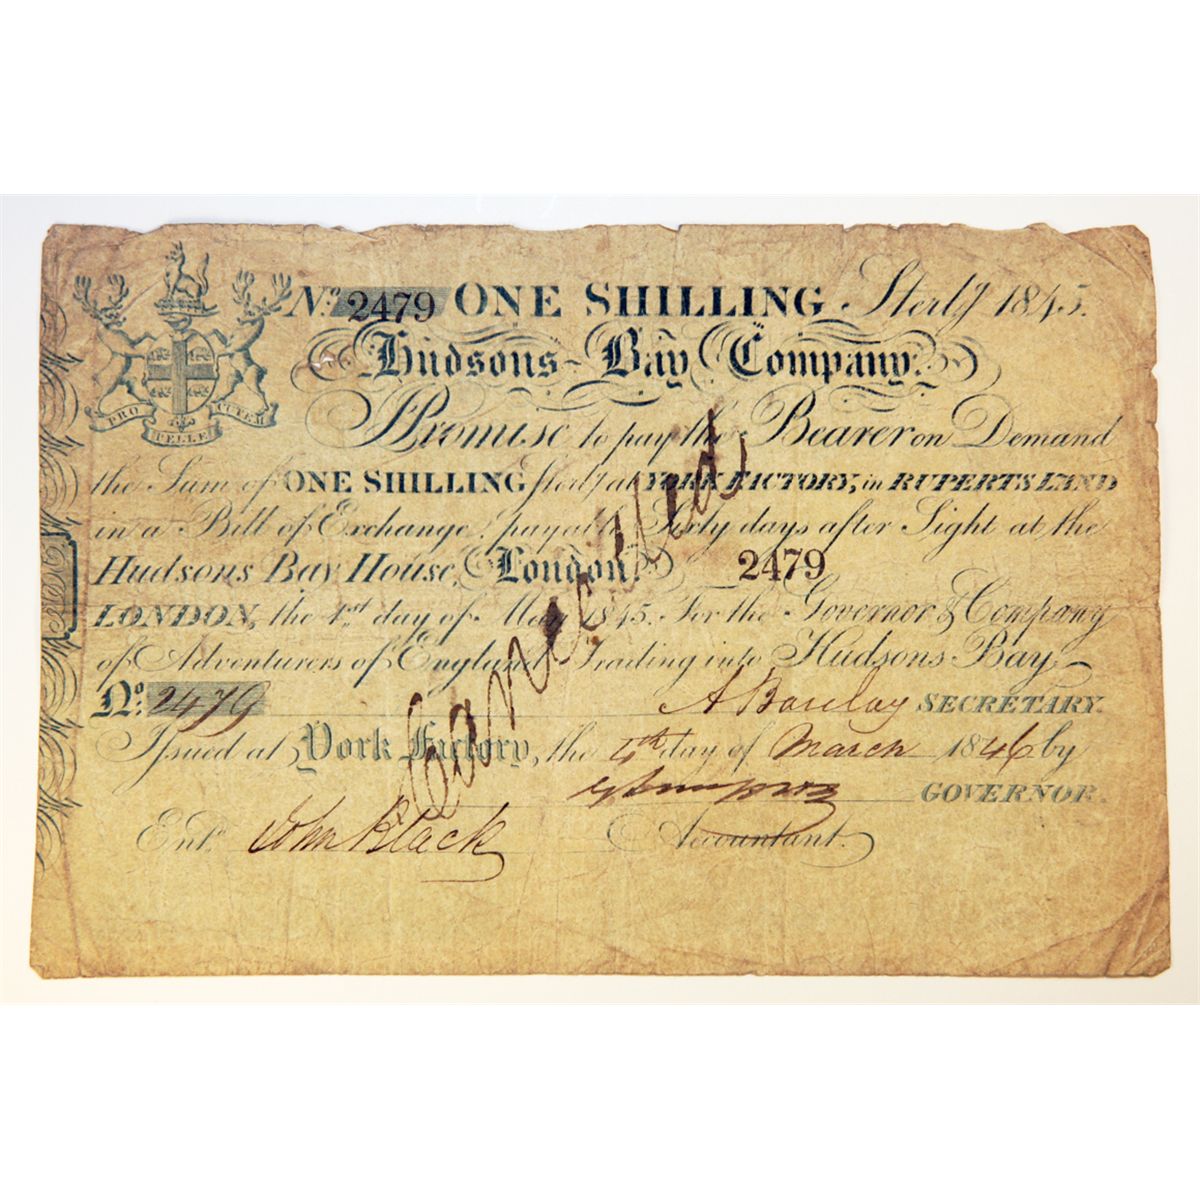 No. 2479 ONE SHILLING Sterlg 1845.
Hudsons Bay Company.
PRO PELLE CUTEM
Promise to pay the Bearer on Demand
the Sum of ONE SHILLING Sterlg at YORK FACTORY, in RUPERTS LAND
in a Bill of Exchange payable Sixty days after Sight at the
Hudsons Bay House, London. 2479
LONDON, the 1st day of May 1845. For the Governor & Company
of Adventurers of England Trading into Hudsons Bay
No. 2479 A Barclay SECRETARY.
Issued at York Factory, the 4th day of March 1846 by
GSimpson GOVERNOR.
Entd. John Black Accountant.
Cancelled